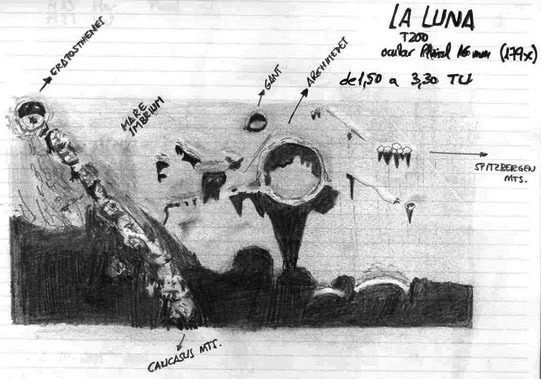 LA LUNA
T200
ocular Plössl 16 mm (179x)
de 1,50 a 3,30 TU
ERATOSTHENES
MARE
IMBRIUM
ARCHIMEDES
SPITZBERGEN
MTS.
CAUCASUS MTS.